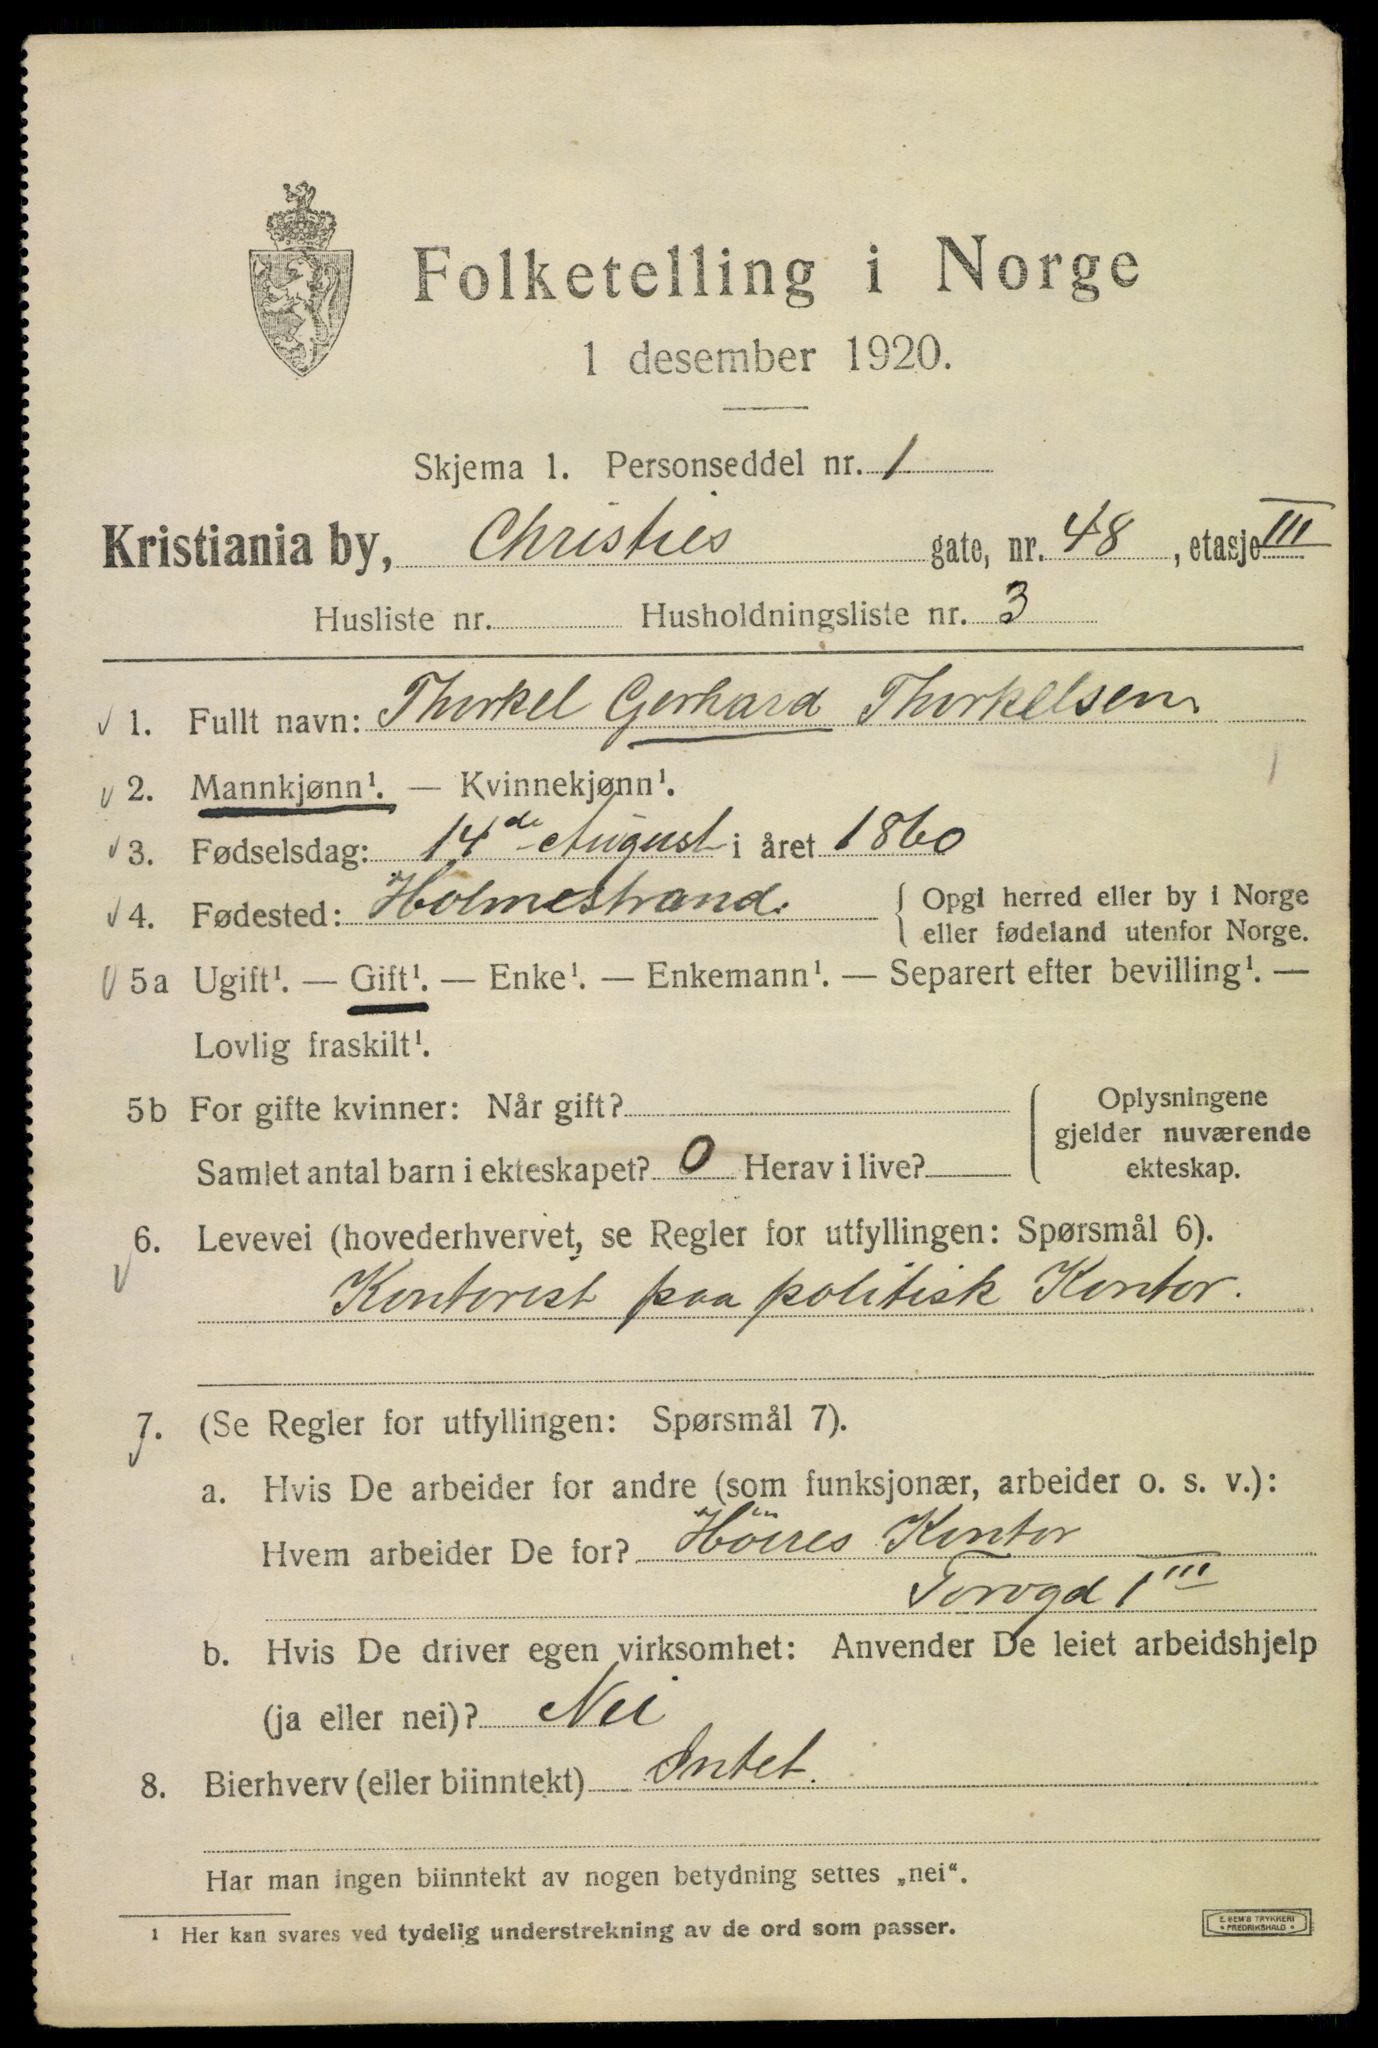 Folketelling i Norge
1 desember 1920.
Skjema 1. Personseddel nr. 1
Kristiania by, Christies gate, nr. 48, etasje III
Husliste nr. Husholdningsliste nr. 3
1. Fullt navn: Thorkel Gerhard Thorkelsen
2. Mannkjønn¹. — Kvinnekjønn¹.
3. Fødselsdag: 14de August i året 1860
4. Fødested: Holmestrand. { Opgi herred eller by i Norge
eller fødeland utenfor Norge.
5a Ugift¹. — Gift¹. — Enke¹. — Enkemann¹. — Separert efter bevilling¹. —
Lovlig fraskilt¹.
5b For gifte kvinner: Når gift? { Oplysningene
gjelder nuværende
Samlet antal barn i ekteskapet? 0 Herav i live? ekteskap.
6. Levevei (hovederhvervet, se Regler for utfyllingen: Spørsmål 6).
Kontorist paa politisk Kontor.
7. (Se Regler for utfyllingen: Spørsmål 7).
a. Hvis De arbeider for andre (som funksjonær, arbeider o. s. v.):
Hvem arbeider De for? Höires Kontor
Torvgd 1 III
b. Hvis De driver egen virksomhet: Anvender De leiet arbeidshjelp
(ja eller nei)? Nei
8. Bierhverv (eller biinntekt) Intet.
Har man ingen biinntekt av nogen betydning settes „nei“.
¹ Her kan svares ved tydelig understrekning av de ord som passer.
E. SEM'S TRYKKERI
FREDRIKSHALD